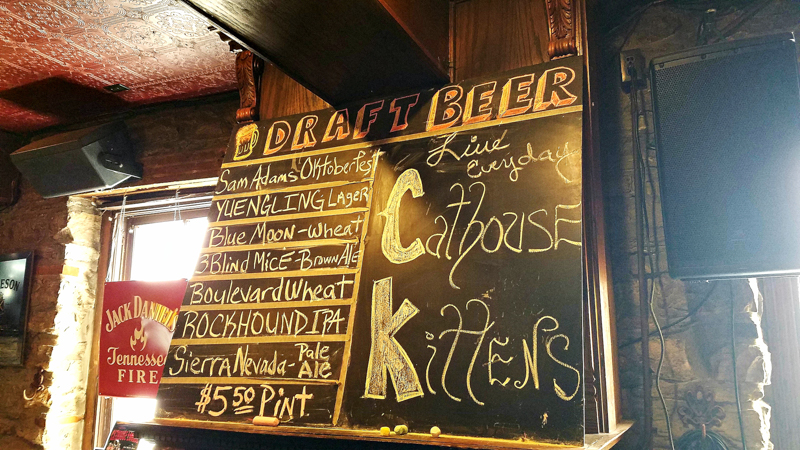 DRAFT BEER
Sam Adams Oktoberfest
YUENGLING LAGER
Blue Moon-Wheat
3 Blind Mice-Brown Ale
Boulevard Wheat
ROCKHOUND IPA
Sierra Nevada-Pale Ale
$5.50 Pint
Live
Everyday
Cathouse
Kittens
JACK DANIEL'S
Tennessee
FIRE